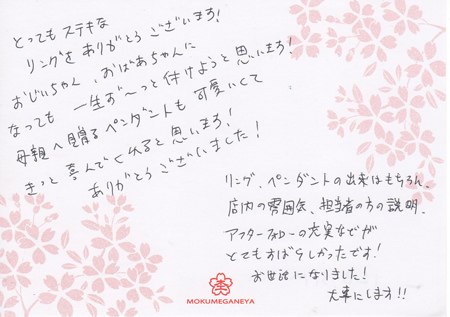 とってもステキな
リングをありがとうございます!
おじいちゃん、おばあちゃんに
なっても 一生ず〜っと付けようと思います!
母親へ贈るペンダントも可愛いくて
きっと喜んでくれると思います!
ありがとうございました!
リング、ペンダントの出来はもちろん、
店内の雰囲気、担当者の方の説明、
アフターフォローの充実などが
とてもすばらしかったです!
お世話になりました!
大事にします!!
MOKUMEGANEYA